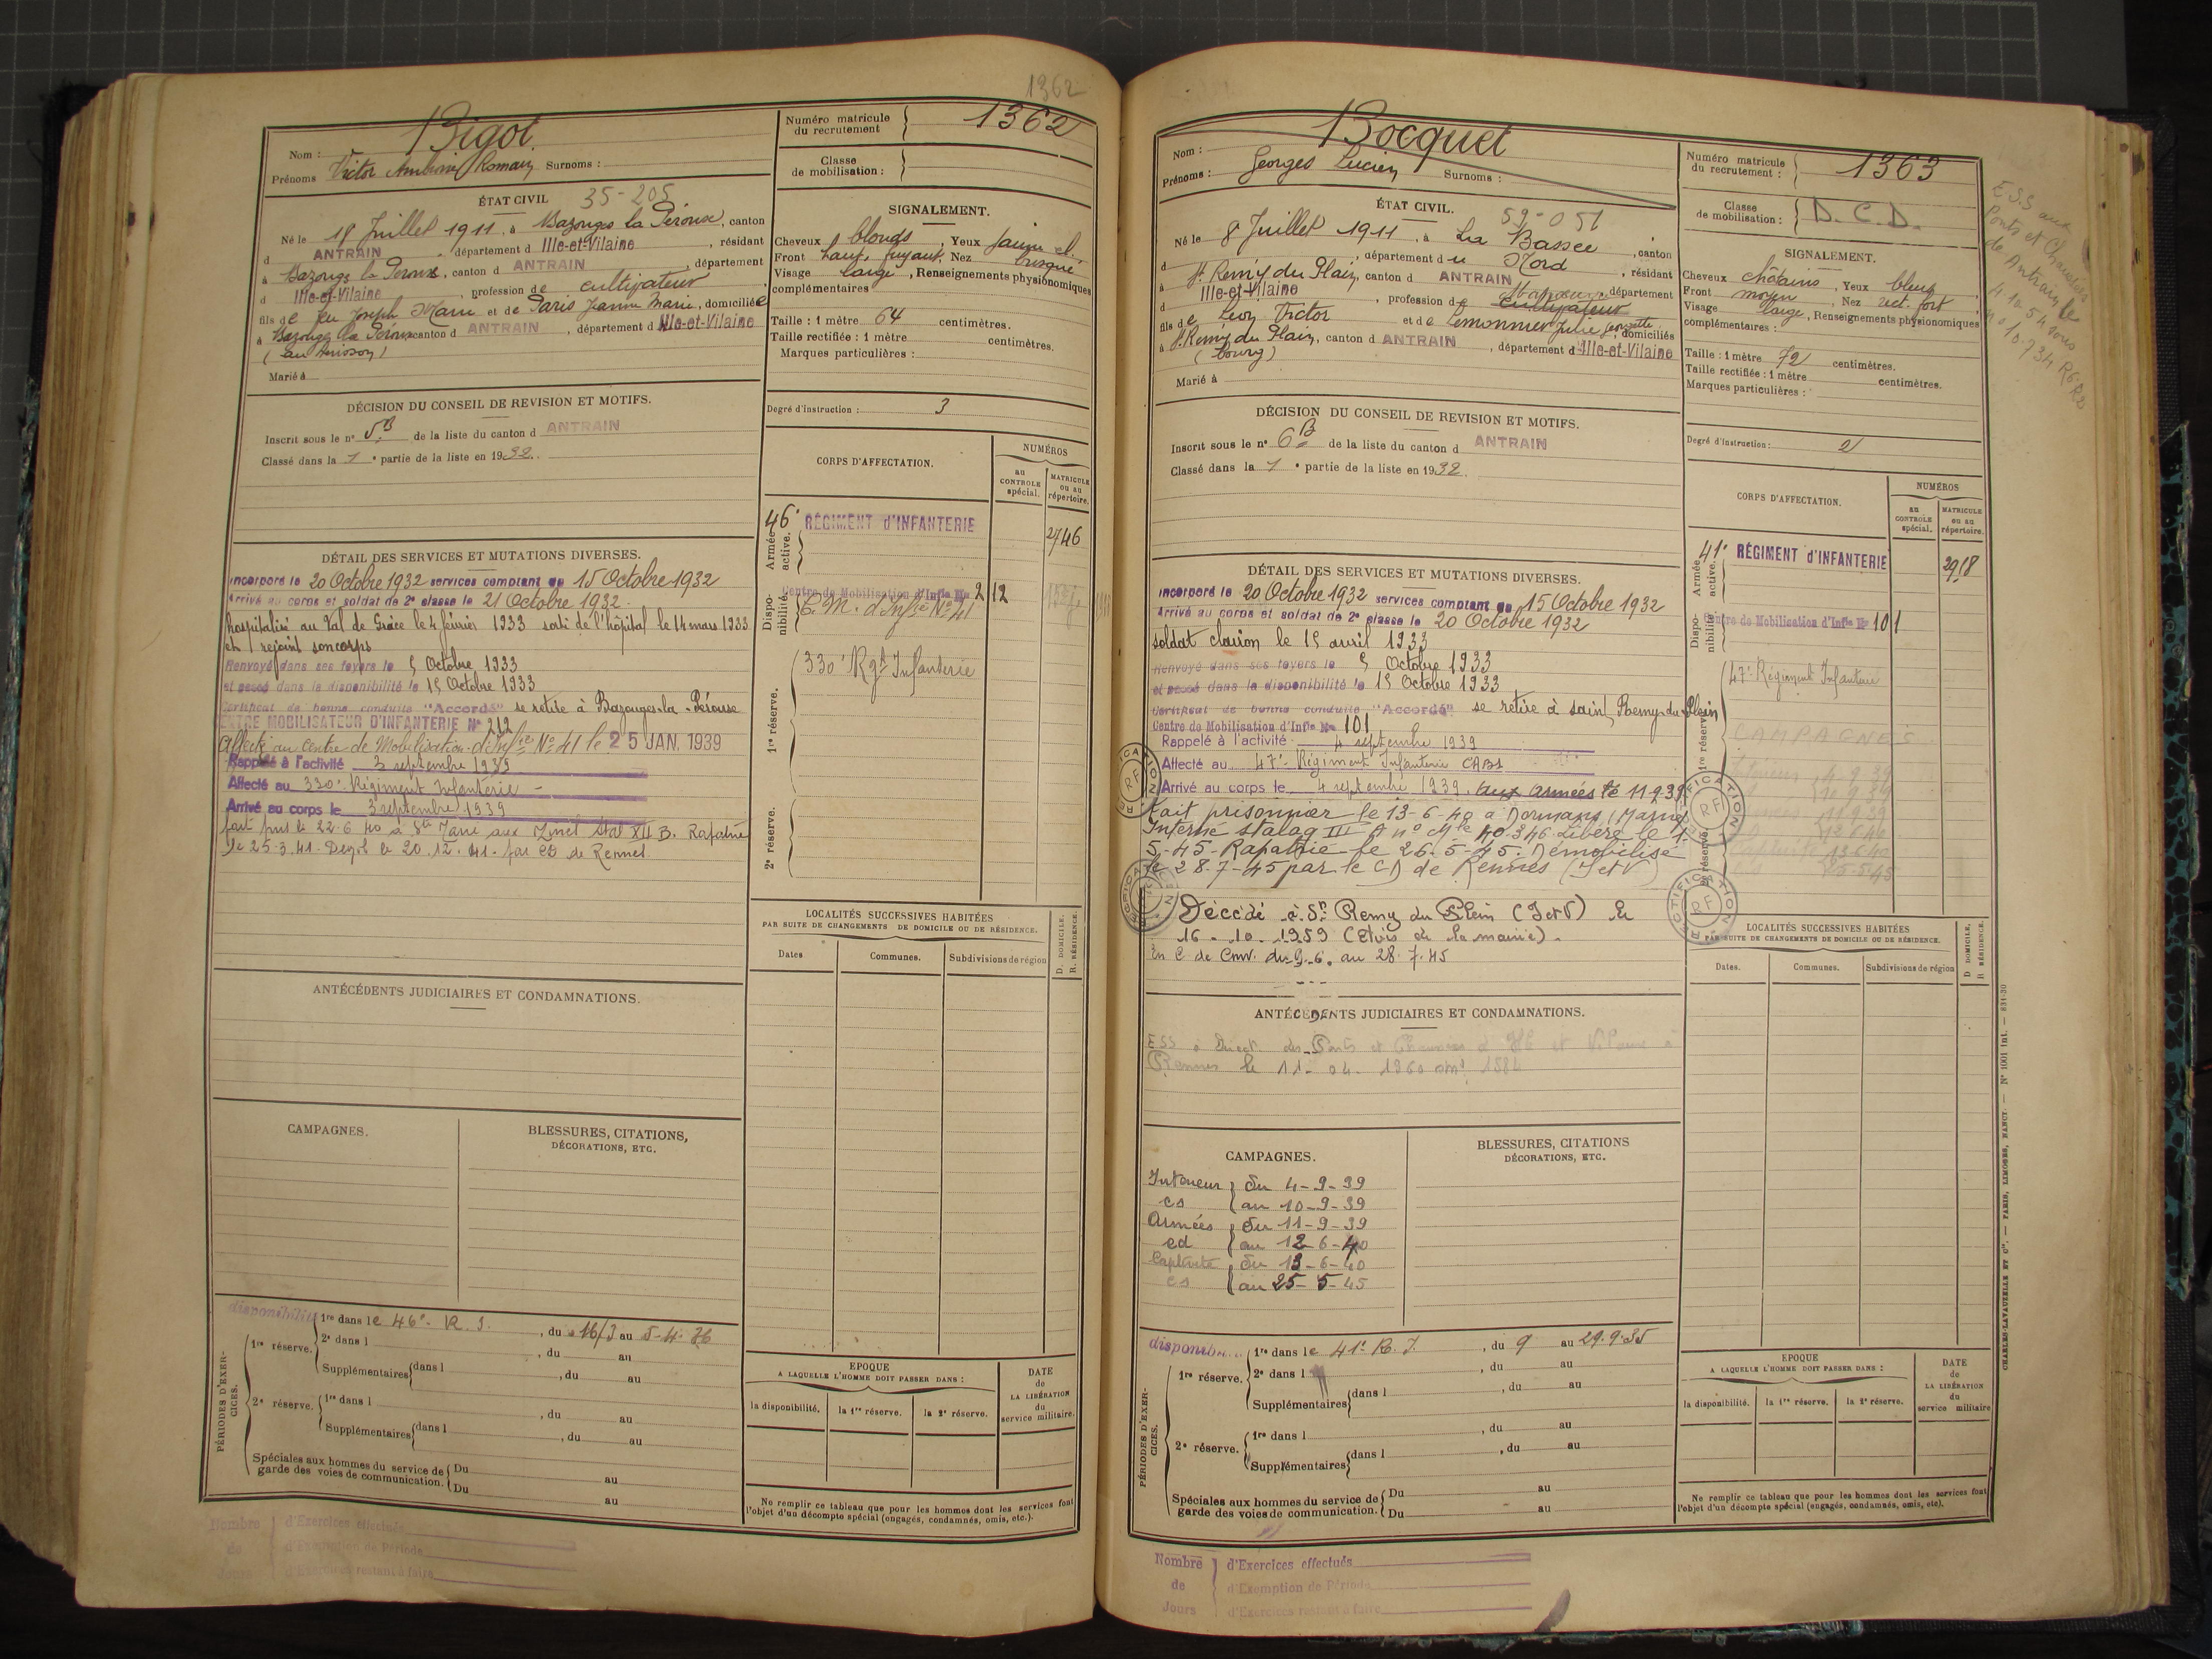 1362
Nom : Bigot
Prénoms Victor Ambroise Romain Surnoms :
Numéro matricule du recrutement } 1362
Classe de mobilisation : {
ÉTAT CIVIL 35-205
Né le 18 Juillet 1911, à Bazouges la Pérouse, canton
d ANTRAIN, département d Ille-et-Vilaine, résidant
à Bazouges la Pérouse, canton d ANTRAIN, département
d Ille-et-Vilaine, profession de cultivateur
fils de feu Joseph Marie et de Paris Jeanne Marie, domiciliée
à Bazouges la Pérouse canton d ANTRAIN, département d Ille-et-Vilaine
Marié à
SIGNALEMENT.
Cheveux blonds, Yeux jaun. cl.
Front haut, fuyant, Nez busqué
Visage large, Renseignements physionomiques
complémentaires
Taille : 1 mètre 64 centimètres.
Taille rectifiée : 1 mètre centimètres.
Marques particulières :
Degré d'instruction : 3
DÉCISION DU CONSEIL DE REVISION ET MOTIFS.
Inscrit sous le n° 5B de la liste du canton d ANTRAIN
Classé dans la 1e partie de la liste en 1932.
CORPS D'AFFECTATION.
NUMÉROS
au CONTROLE spécial.
MATRICULE ou au répertoire.
Armée active. 46e RÉGIMENT d'INFANTERIE 2746
Disponibilité. Centre de Mobilisation d'Infie No 212
C. M. d'Infie No 41
1re réserve. 330e Rgt Infanterie
2e réserve.
DÉTAIL DES SERVICES ET MUTATIONS DIVERSES.
Incorporé le 20 Octobre 1932 services comptant du 15 Octobre 1932
Arrivé au corps et soldat de 2e classe le 21 Octobre 1932.
hospitalisé au Val de Grâce le 4 février 1933 sorti de l'hôpital le 14 mars 1933
et rejoint son corps
Renvoyé dans ses foyers le 5 Octobre 1933
et passé dans la disponibilité le 15 Octobre 1933
Certificat de bonne conduite "Accordé" se retire à Bazouges-la-Pérouse
CENTRE MOBILISATEUR D'INFANTERIE No 212
Affecté au Centre de Mobilisation d'Infie No 41 le 25 JAN. 1939
Rappelé à l'activité 3 septembre 1939
Affecté au 330e Régiment Infanterie
Arrivé au corps le 3 septembre 1939
fait pris le 22-6-40 à Ste Marie aux Mines Stal XII B. Rapatrié
le 25-3.41. Dég. le 20.12.41. par CD de Rennes.
LOCALITÉS SUCCESSIVES HABITÉES
PAR SUITE DE CHANGEMENTS DE DOMICILE OU DE RÉSIDENCE.
Dates Communes. Subdivisions de région D. DOMICILE. R. RÉSIDENCE.
ANTÉCÉDENTS JUDICIAIRES ET CONDAMNATIONS.
CAMPAGNES.
BLESSURES, CITATIONS, DÉCORATIONS, ETC.
PÉRIODES D'EXERCICES.
disponibilité
1re réserve. 1re dans le 46e R.I., du 16/3 au 5-4-36
2e dans l , du au
Supplémentaires dans l , du au
2e réserve. 1re dans l , du au
Supplémentaires dans l , du au
Spéciales aux hommes du service de garde des voies de communication. Du au
Du au
EPOQUE A LAQUELLE L'HOMME DOIT PASSER DANS :
la disponibilité. la 1re réserve. la 2e réserve.
DATE de LA LIBÉRATION du service militaire.
Ne remplir ce tableau que pour les hommes dont les services font
l'objet d'un décompte spécial (engagés, condamnés, omis, etc.).
Nombre de Jours
d'Exercices effectués
d'Exemption de Période
d'Exercices restant à faire
Nom : Bocquet
Prénoms : Georges Lucien Surnoms :
Numéro matricule du recrutement : } 1363
Classe de mobilisation : { D.C.D.
ÉTAT CIVIL. 59-051
Né le 8 Juillet 1911, à La Bassée, canton
d , département du Nord, résidant
à St Rémy du Plain, canton d ANTRAIN, département
d Ille-et-Vilaine, profession de cultivateur
fils de Léon Victor et de Lemonnier Julie Georgette, domiciliés
à St Rémy du Plain, canton d ANTRAIN, département d Ille-et-Vilaine
(bourg)
Marié à
SIGNALEMENT.
Cheveux châtains, Yeux bleus
Front moyen, Nez rect. fort
Visage large, Renseignements physionomiques
complémentaires :
Taille : 1 mètre 72 centimètres.
Taille rectifiée : 1 mètre centimètres.
Marques particulières :
Degré d'instruction : 2
E.S.S aux
Ponts et Chaussées
de Antrain le
4.10.54 sous
n° 10.734 R6R2
DÉCISION DU CONSEIL DE REVISION ET MOTIFS.
Inscrit sous le n° 6B de la liste du canton d ANTRAIN
Classé dans la 1e partie de la liste en 1932.
CORPS D'AFFECTATION.
NUMÉROS
au CONTROLE spécial.
MATRICULE ou au répertoire.
Armée active. 41e RÉGIMENT d'INFANTERIE 2918
Disponibilité. Centre de Mobilisation d'Infie No 101
1re réserve. 47e Régiment Infanterie
CAMPAGNES
2e réserve.
DÉTAIL DES SERVICES ET MUTATIONS DIVERSES.
Incorporé le 20 Octobre 1932 services comptant du 15 Octobre 1932
Arrivé au corps et soldat de 2e classe le 20 Octobre 1932
soldat clairon le 15 avril 1933
Renvoyé dans ses foyers le 5 Octobre 1933
et passé dans la disponibilité le 15 Octobre 1933
Certificat de bonne conduite "Accordé" se retire à saint Remy-du-Plein
Centre de Mobilisation d'Infie No 101
Rappelé à l'activité 4 septembre 1939
Affecté au 47e Régiment Infanterie CAB1
Arrivé au corps le 4 septembre 1939. aux armées le 11.9.39
Fait prisonnier le 13-6-40 à Dormans (Marne)
Interné stalag III A n° Mle 40.346 Libéré le 1-
5-45- Rapatrié le 26.5-45. Démobilisé
le 28-7-45 par le CD de Rennes (I et V)
Décédé à St Remy du Plein (I et V) le
16-10-1959 (Avis de la mairie).
En C de Conv. du 9.6. au 28.7.45
RECTIFICATION RF
LOCALITÉS SUCCESSIVES HABITÉES
PAR SUITE DE CHANGEMENTS DE DOMICILE OU DE RÉSIDENCE.
Dates. Communes. Subdivisions de région D DOMICILE, R RÉSIDENCE.
ANTÉCÉDENTS JUDICIAIRES ET CONDAMNATIONS.
ESS à Direct. des Ponts et Chaussées d'Ille et Vilaine à
Rennes le 11-04-1960
CAMPAGNES.
Intérieur { du 4-9-39
cs { au 10-9-39
Armées { du 11-9-39
cd { au 12-6-40
Captivité { du 13-6-40
cs { au 25-5-45
BLESSURES, CITATIONS DÉCORATIONS, ETC.
PÉRIODES D'EXERCICES.
1re réserve. 1re dans le 41e R.I., du 9 au 29.9.35
2e dans l , du au
Supplémentaires dans l , du au
2e réserve. 1re dans l , du au
Supplémentaires dans l , du au
Spéciales aux hommes du service de garde des voies de communication. Du au
Du au
EPOQUE A LAQUELLE L'HOMME DOIT PASSER DANS :
la disponibilité. la 1re réserve. la 2e réserve.
DATE de LA LIBÉRATION du service militaire
Ne remplir ce tableau que pour les hommes dont les services font
l'objet d'un décompte spécial (engagés, condamnés, omis, etc).
Nombre de Jours
d'Exercices effectués
d'Exemption de Période
d'Exercices restant à faire
CHARLES-LAVAUZELLE ET Cie. — PARIS, LIMOGES, NANCY. — N° 1001 int. — 831-30